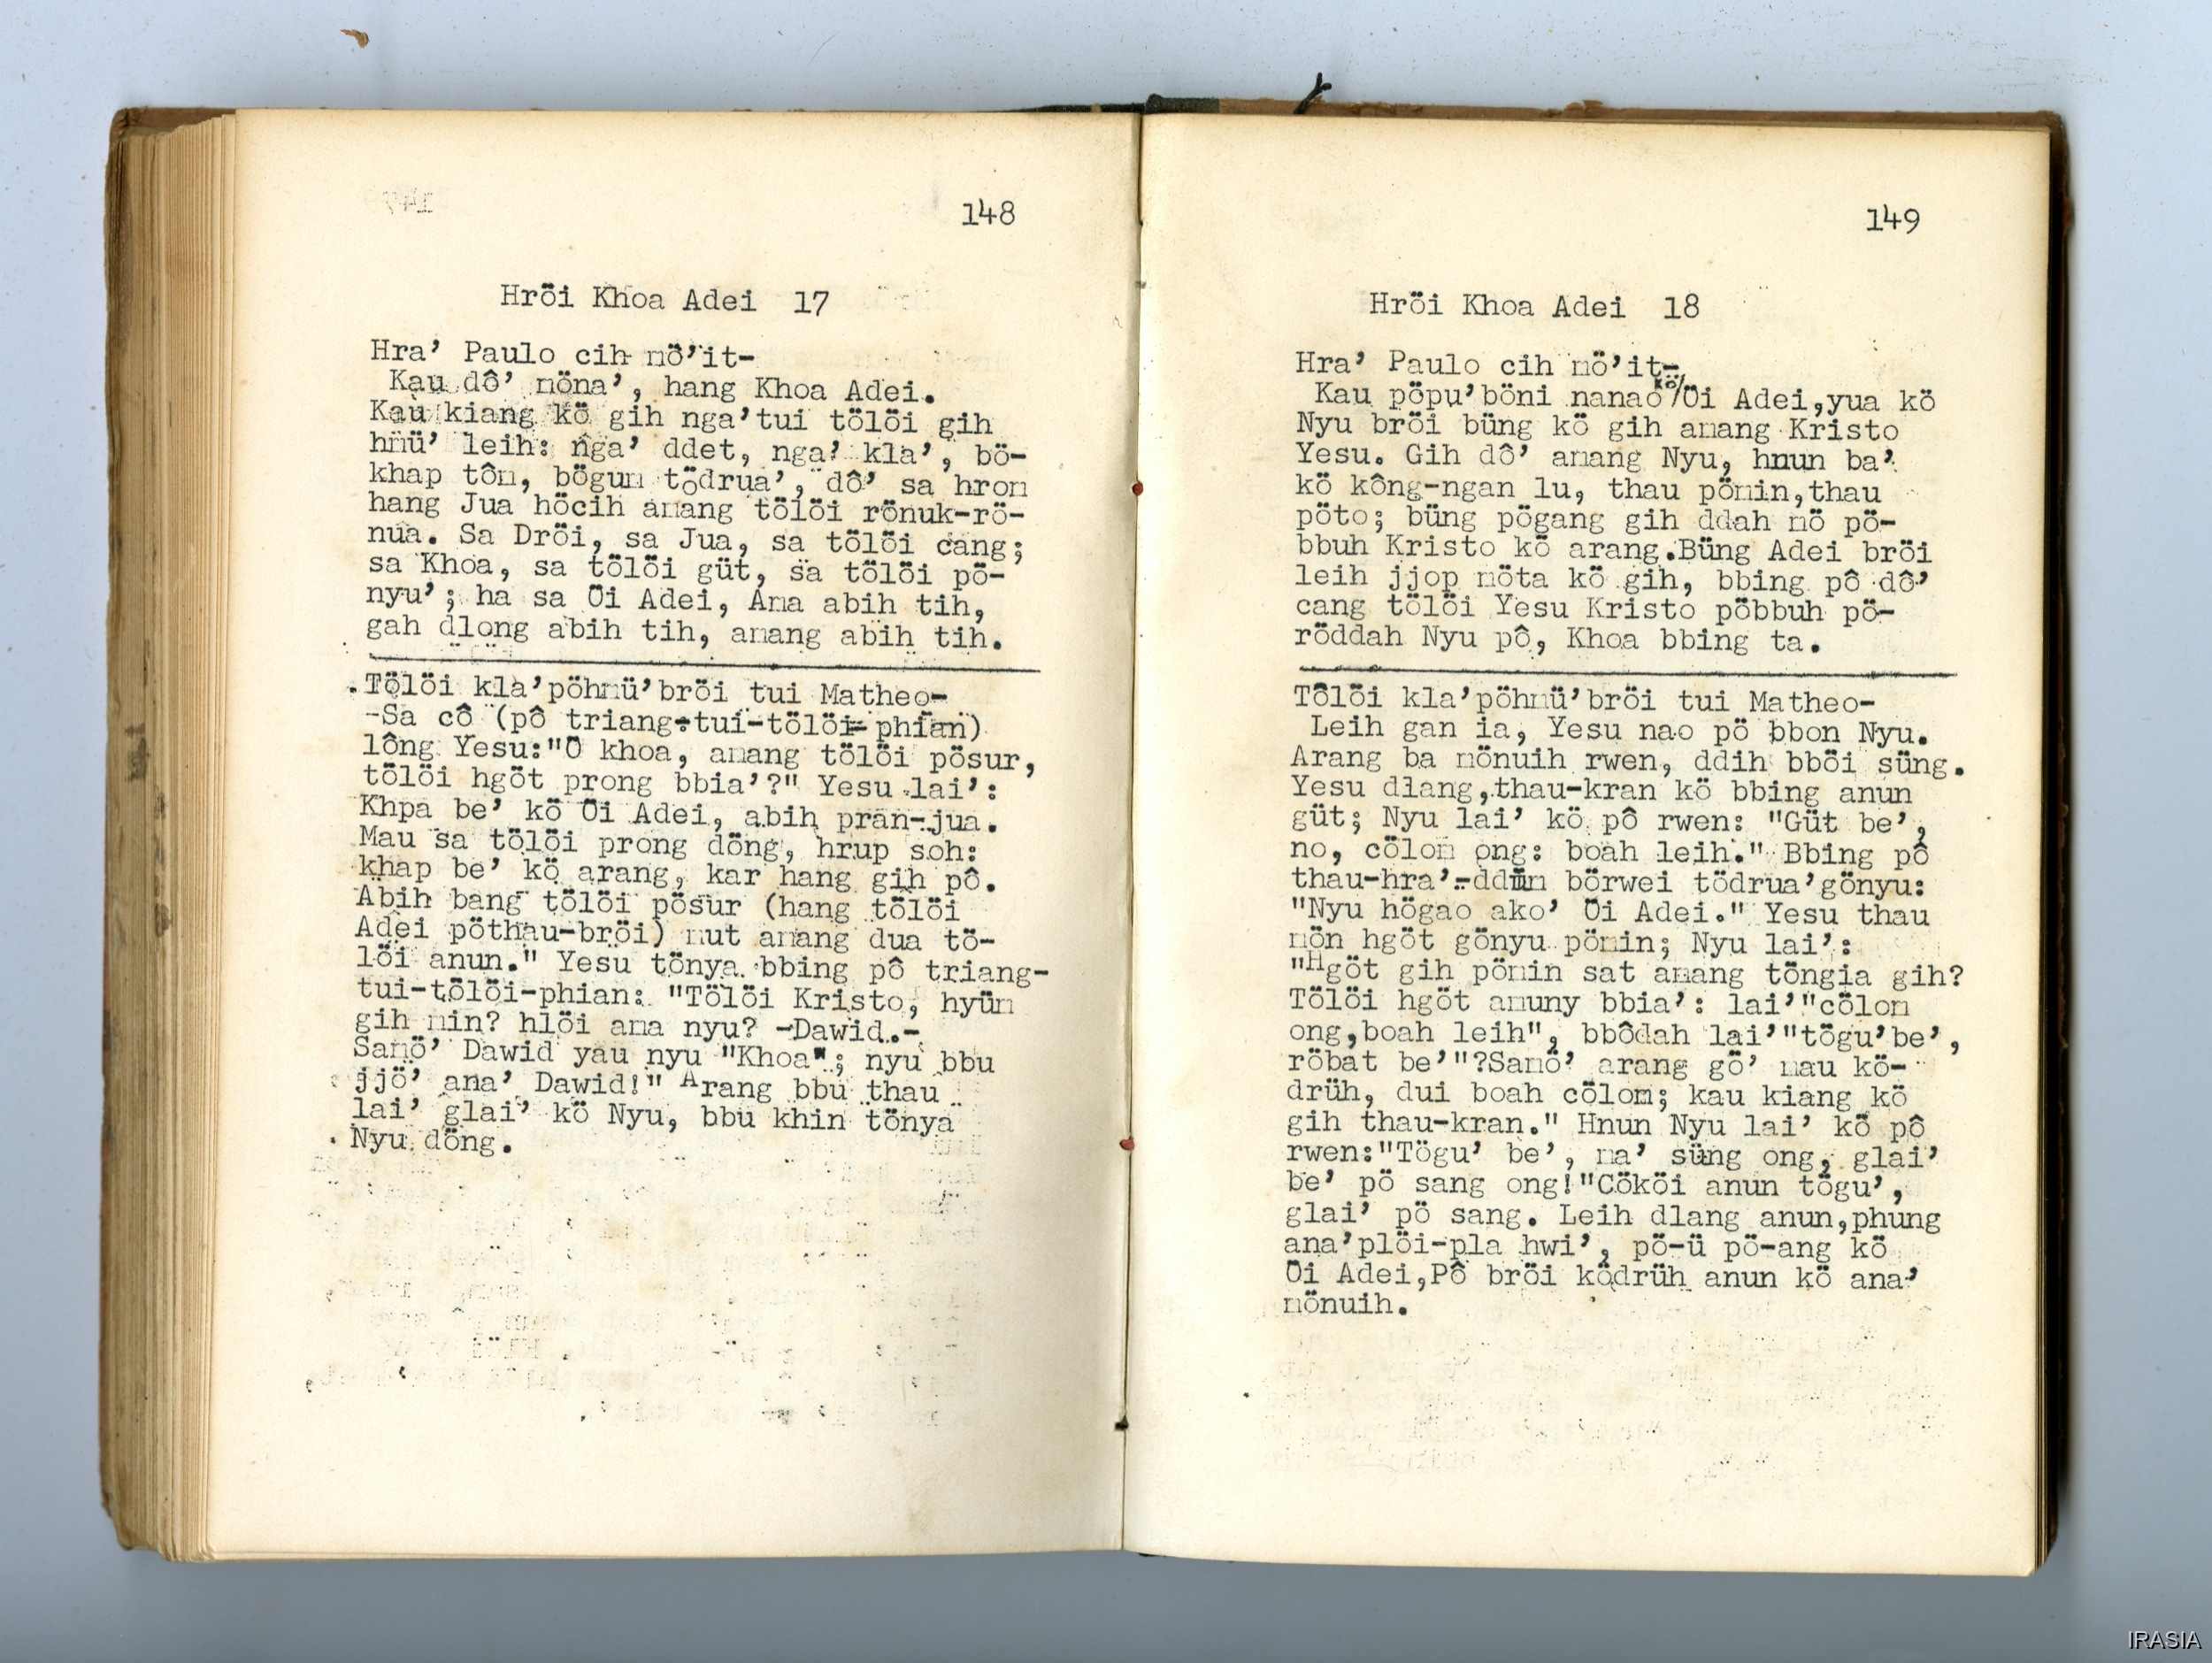 148
Hröi Khoa Adei 17
Hra’ Paulo cih nö’it-
Kau dô’ nöna’, hang Khoa Adei.
Kau kiang kö gih nga’tui tölöi gih
hnü’ leih: nga’ ddet, nga’ kla’, bö-
khap tôn, bögun tödrua’, dô’ sa hron
hang Jua höcih anang tölöi rönuk-rö-
nua. Sa Dröi, sa Jua, sa tölöi cang;
sa Khoa, sa tölöi güt, sa tölöi pö-
nyu’; ha sa Öi Adei, Ana abih tih,
gah dlong abih tih, anang abih tih.
Tölöi kla’pöhnü’bröi tui Matheo-
-Sa cô (pô triang-tui-tölöi-phian)
lông Yesu:"Ö khoa, anang tölöi pösur,
tölöi hgöt prong bbia’?" Yesu lai’:
Khpa be’ kö Öi Adei, abih pran-jua.
Mau sa tölöi prong döng, hrup soh:
khap be’ kö arang, kar hang gih pô.
Abih bang tölöi pösur (hang tölöi
Adei pöthau-bröi) nut anang dua tö-
löi anun." Yesu tönya bbing pô triang-
tui-tölöi-phian: "Tölöi Kristo, hyün
gih nin? hlöi ana nyu? -Dawid.-
Sanö’ Dawid yau nyu "Khoa"; nyu bbu
jjö’ ana’ Dawid!" Arang bbu thau
lai’ glai’ kö Nyu, bbu khin tönya
Nyu döng.
149
Hröi Khoa Adei 18
Hra’ Paulo cih nö’it-
Kau pöpu’böni nanao kö/Öi Adei,yua kö
Nyu bröi büng kö gih anang Kristo
Yesu. Gih dô’ anang Nyu, hnun ba’
kö kông-ngan lu, thau pönin,thau
pöto; büng pögang gih ddah nö pö-
bbuh Kristo kö arang.Büng Adei bröi
leih jjop nöta kö gih, bbing pô dô’
cang tölöi Yesu Kristo pöbbuh pö-
röddah Nyu pô, Khoa bbing ta.
Tôlöi kla’pöhnü’bröi tui Matheo-
Leih gan ia, Yesu nao pö bbon Nyu.
Arang ba nönuih rwen, ddih bböi süng.
Yesu dlang,thau-kran kö bbing anun
güt; Nyu lai’ kö pô rwen: "Güt be’,
no, cölon ong: boah leih." Bbing pô
thau-hra’-ddün börwei tödrua’gönyu:
"Nyu högao ako’ Öi Adei." Yesu thau
nön hgöt gönyu pönin; Nyu lai’:
"Hgöt gih pönin sat anang töngia gih?
Tölöi hgöt anuny bbia’: lai’"cölon
ong,boah leih", bbôdah lai’"tögu’be’,
röbat be’"?Sanö’ arang gö’ nau kö-
drüh, dui boah cölon; kau kiang kö
gih thau-kran." Hnun Nyu lai’ kö pô
rwen:"Tögu’ be’, na’ süng ong, glai’
be’ pö sang ong!"Cököi anun tögu’,
glai’ pö sang. Leih dlang anun,phung
ana’plöi-pla hwi’, pö-ü pö-ang kö
Öi Adei,Pô bröi ködrüh anun kö ana’
nönuih.
IRASIA